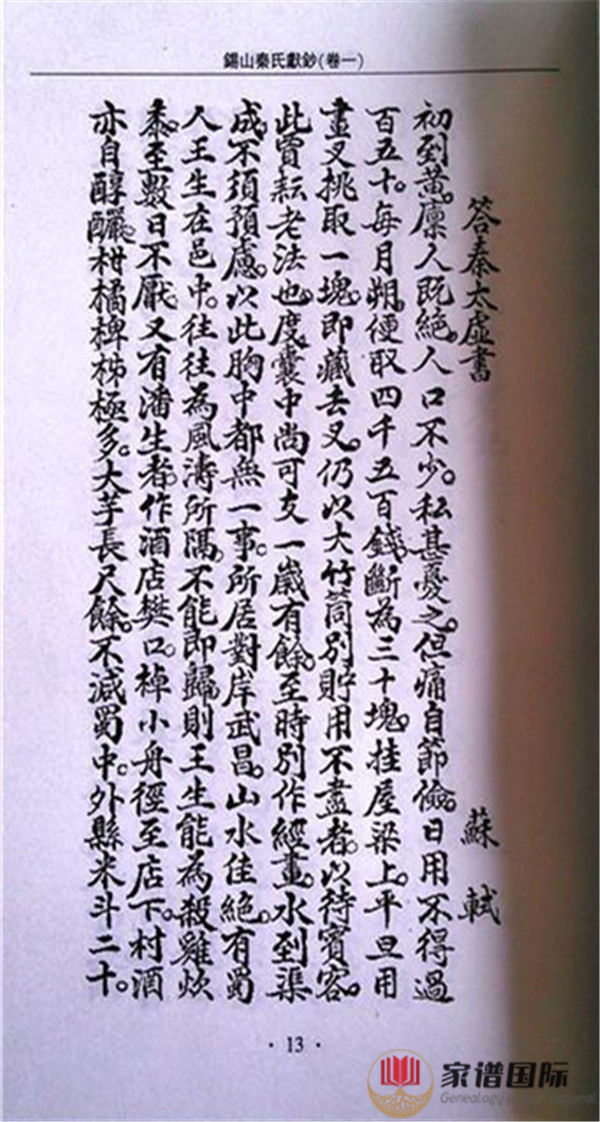 錫山秦氏獻鈔(卷一)
答秦太虛書 蘇軾
初到黃。廩人既絕。人口不少。私甚憂之。但痛自節儉。日用不得過
百五十。每月朔。便取四千五百錢。斷為三十塊。挂屋梁上。平旦用
畫叉挑取一塊。即藏去叉。仍以大竹筒別貯用不盡者。以待賓客。
此賈耘老法也。度囊中尚可支一歲有餘。至時別作經畫。水到渠
成。不須預慮。以此胸中都無一事。所居對岸武昌。山水佳絕。有蜀
人王生在邑中。往往為風濤所隔。不能即歸。則王生能為殺雞炊
黍。至數日不厭。又有潘生者。作酒店樊口。棹小舟徑至店下。村酒
亦自醇釅。柑橘椑柹極多。大芋長尺餘。不減蜀中。外縣米斗二十。
· 13 ·
家谱国际
Genealogy of International